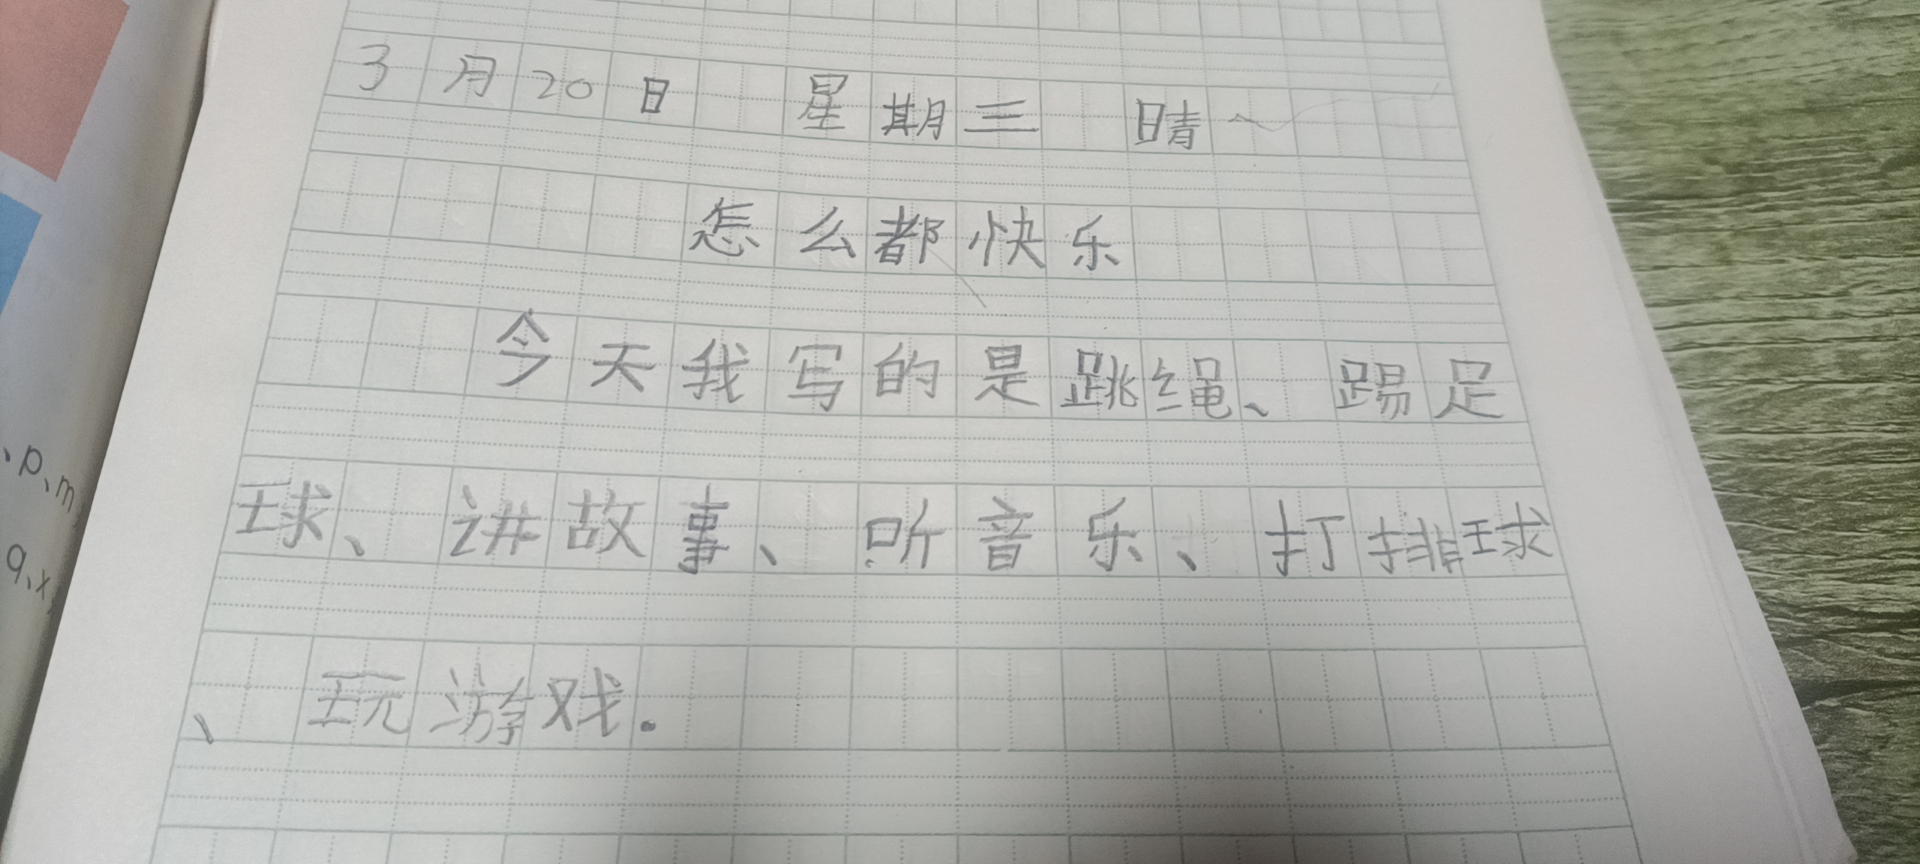 3月20日 星期三 晴
怎么都快乐
今天我写的是跳绳、踢足
球、讲故事、听音乐、打排球
、玩游戏.
、p、m
q、x